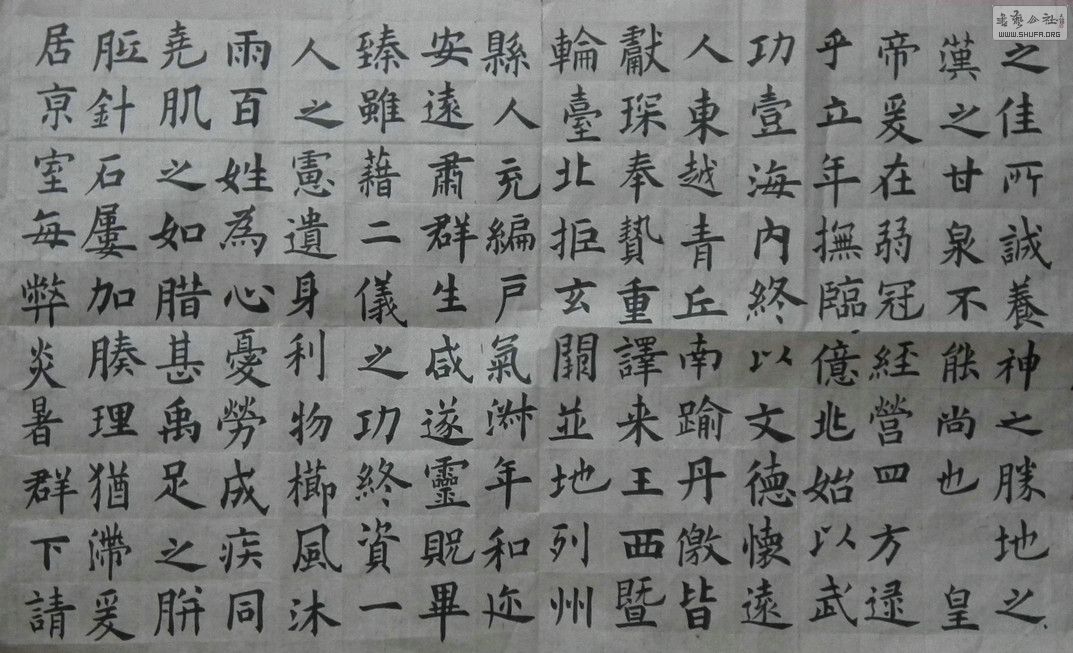 之佳所誠養神之勝地之
漢之甘泉不能尚也 皇
帝爰在弱冠經營四方逯
乎立年撫臨億兆始以武
功壹海內終以文德懷遠
人東越青丘南踰丹儌皆
獻琛奉贄重譯来王西暨
輪臺北拒玄闕並地列州
縣人充編戶氣淑年和迩
安遠肅群生咸遂靈貺畢
臻雖藉二儀之功終資一
人之憲遺身利物櫛風沐
雨百姓為心憂勞成疾同
堯肌之如腊甚禹足之胼
胝針石屢加腠理猶滯爰
居京室每弊炎暑群下請
書藝公社
WWW.SHUFA.ORG